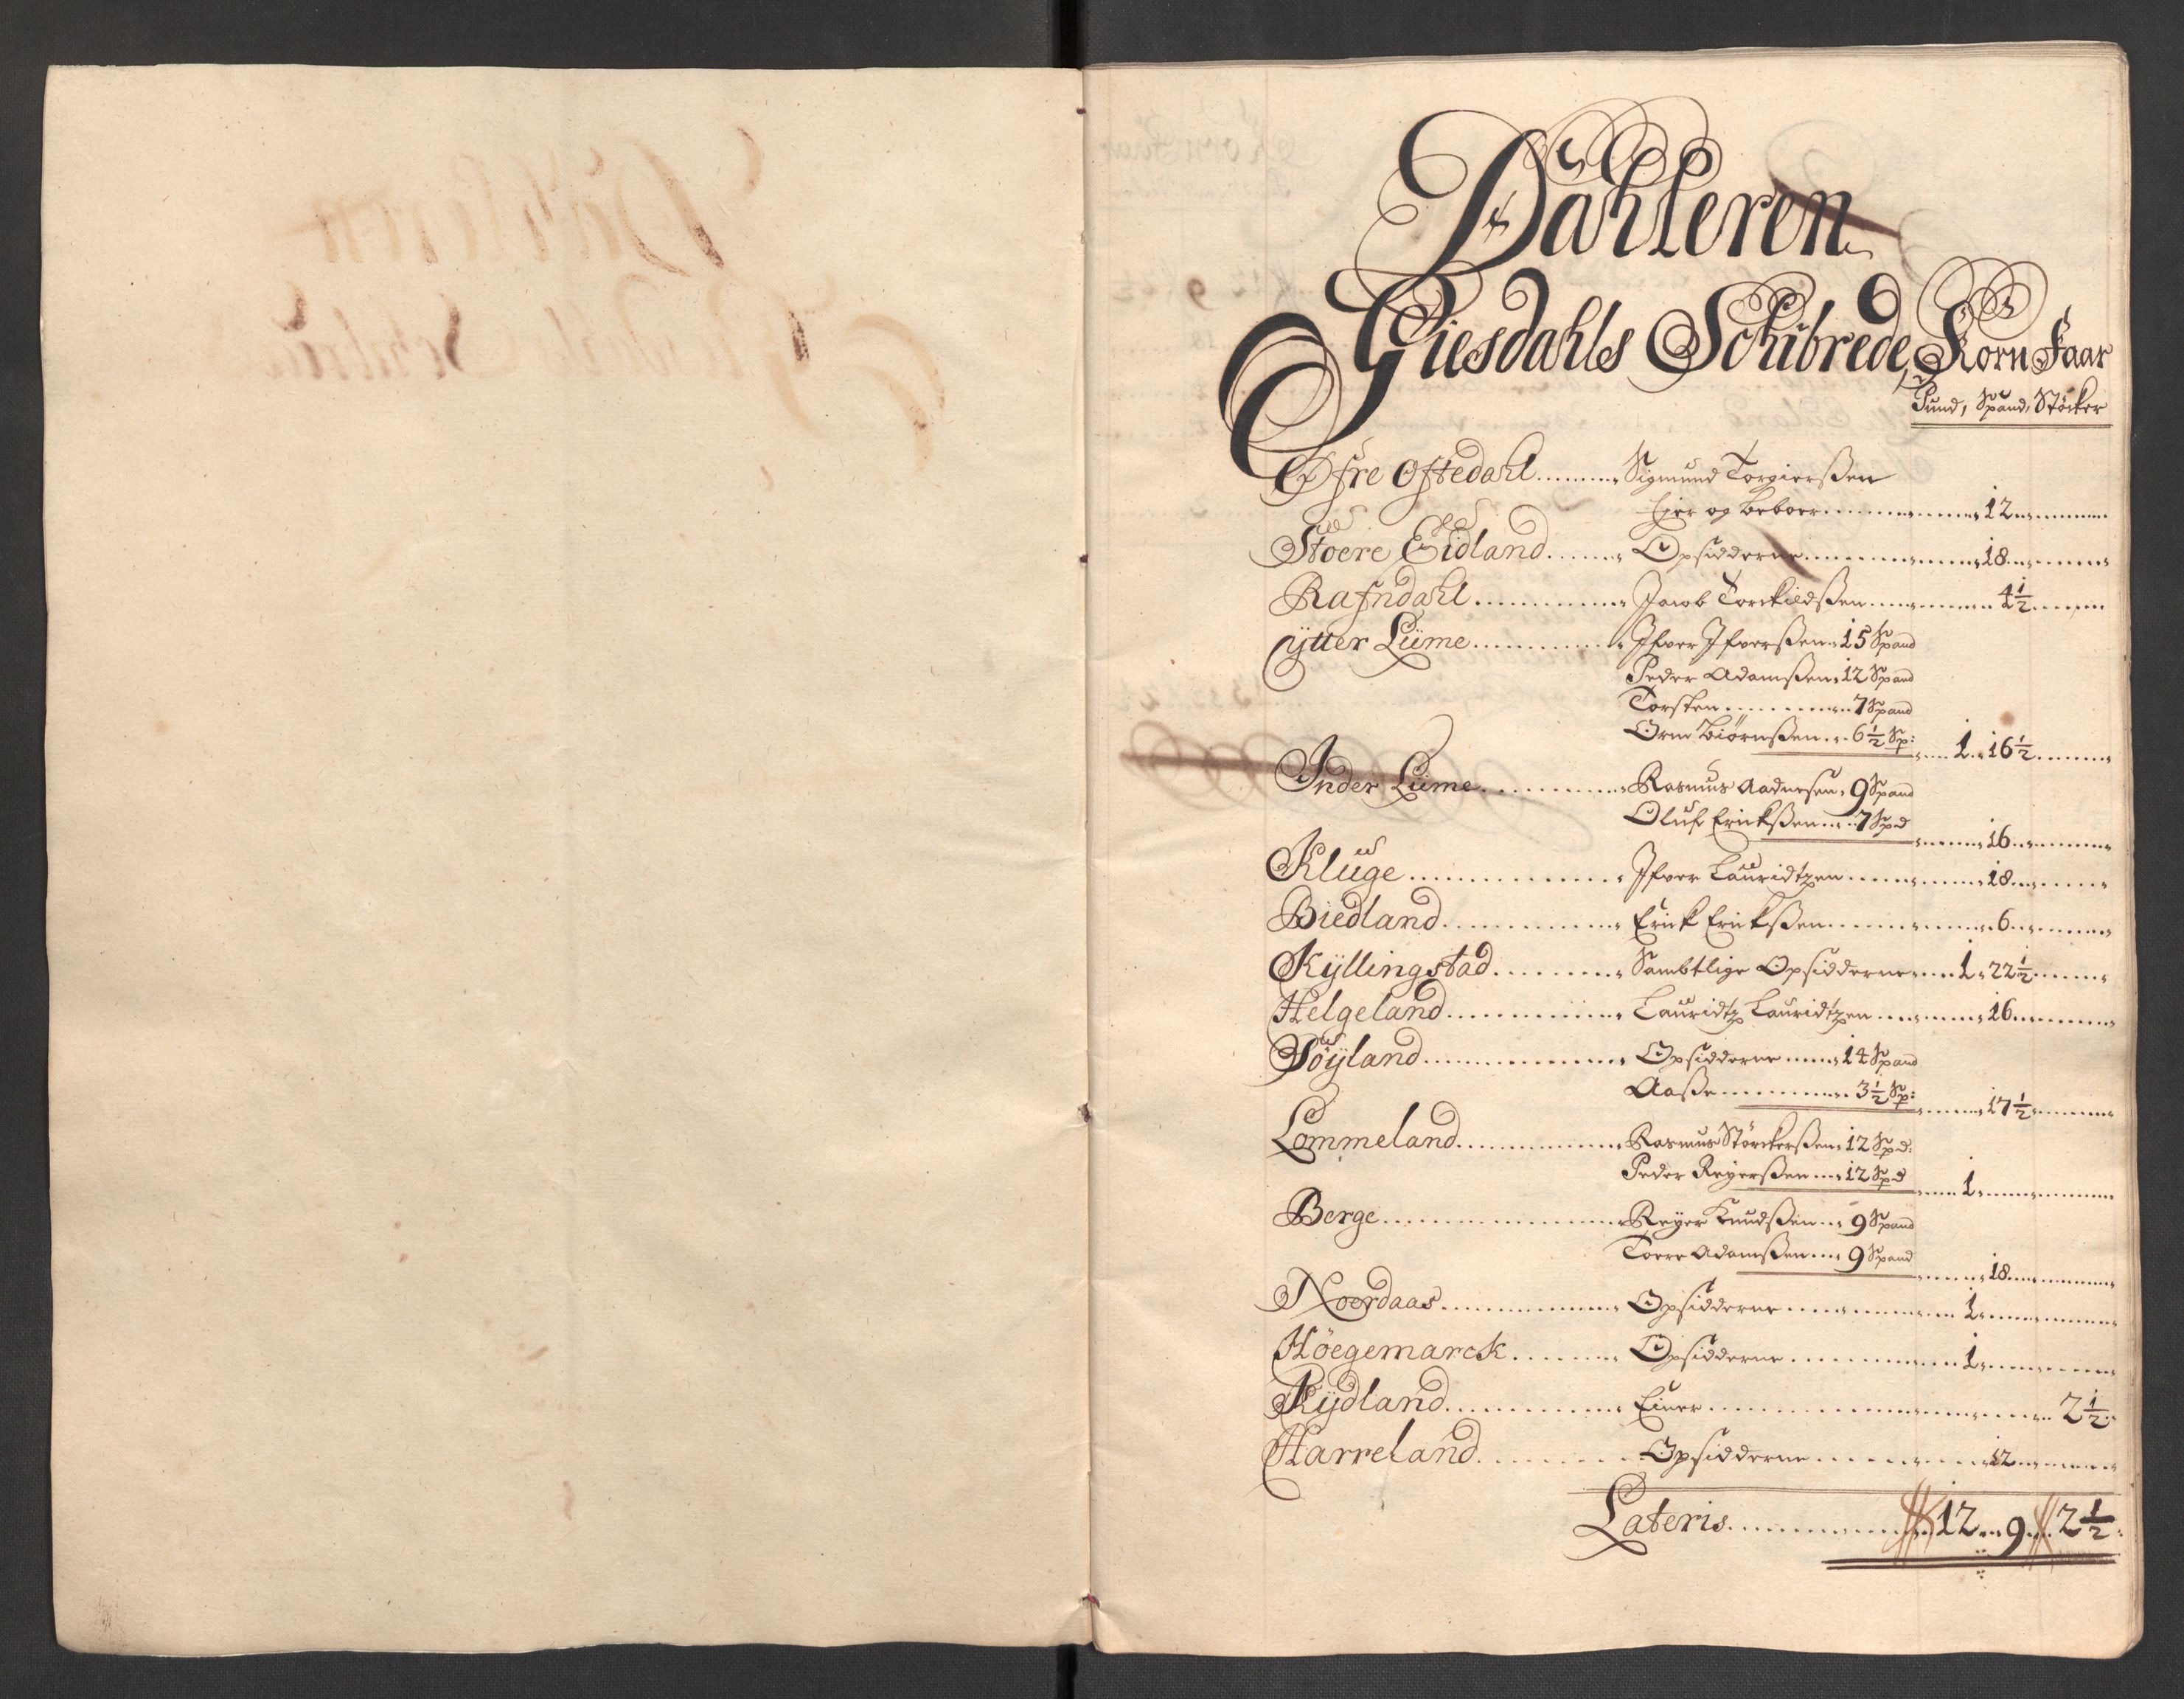 Dahleren
Giesdahls Schibrede, Korn Faar
Pund, Spand, Støcker
Øfre Oftedahl ......... Sigmund Torgierßen
Ejer og beboer ......... 12 .........
Støere Eidland ...... Opsidderne ......... 18 .........
Rafndahl ............ Jacob Torckildßen ......... 4 1/2 .........
ÿtter Liime ............ Ifver Ifverßen 15 Spand
Peder Adamßen 12 Spand
Torsten ......... 7 Spand
Orm Biørnßen .. 6 1/2 Sp: .... 1 .. 16 1/2 .........
Inder Liime ............ Rasmus Aadnesen 9 Spand
Oluf Erickßen .... 7 Spd ......... 16 .........
Kluge ............ Ifver Lauridtzen ......... 18 .........
Biedland ............ Erick Erickßen ......... 6 .........
Kÿllingstad ......... Sambtlige Opsidderne .... 1 .. 22 1/2 .........
Helgeland ............ Lauridtz Lauridtzen ......... 16 .........
Søÿland ............ Opsidderne ..... 14 Spand
Aaße ......... 3 1/2 Sp: ......... 17 1/2 .........
Lommeland ............ Rasmus Størckerßen 12 Spd:
Peder Reÿerßen .... 12 Spd .... 1 .........
Berge ............ Reÿer Knudßen .. 9 Spand
Torre Adamßen ... 9 Spand ......... 18 .........
Noerdaas ............ Opsidderne ......... 1 .........
Høegemarck ......... Opsidderne ......... 1 .........
Rÿdland ............ Einer ......... 2 1/2
Harreland ............ Opsidderne ......... 12 .........
Lateris ......... 12 .. 9 .. 2 1/2